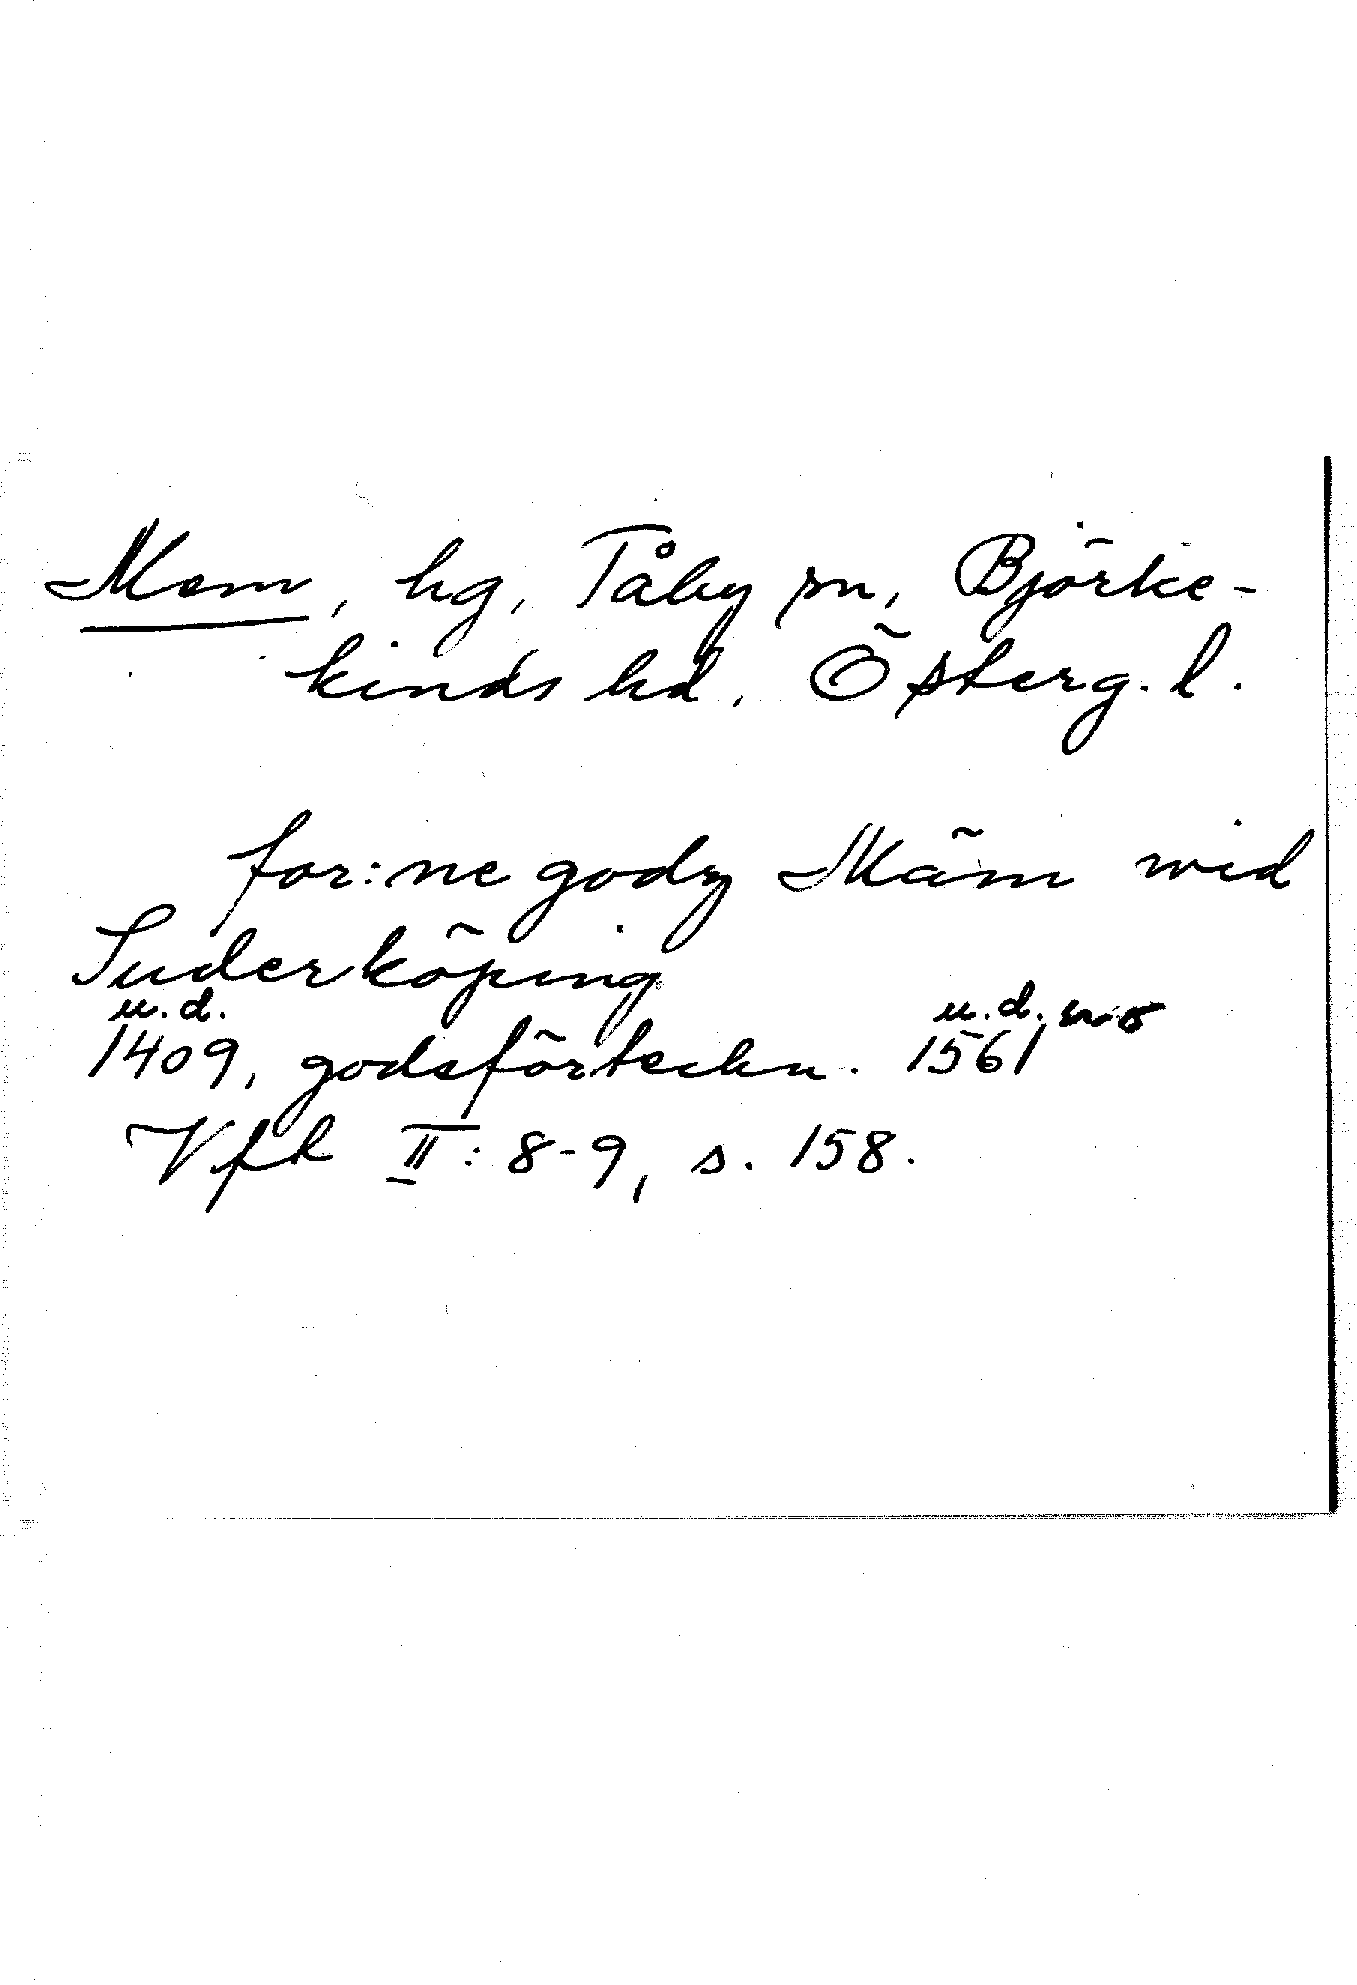 Mem, hg, Tåby sn, Björke-
kinds hd, Österg. l.
for:ne godz Mäm wid
Suderköping
u.d. u.d.
1409, godsförteckn. 1561
Vfk II: 8-9, s. 158.